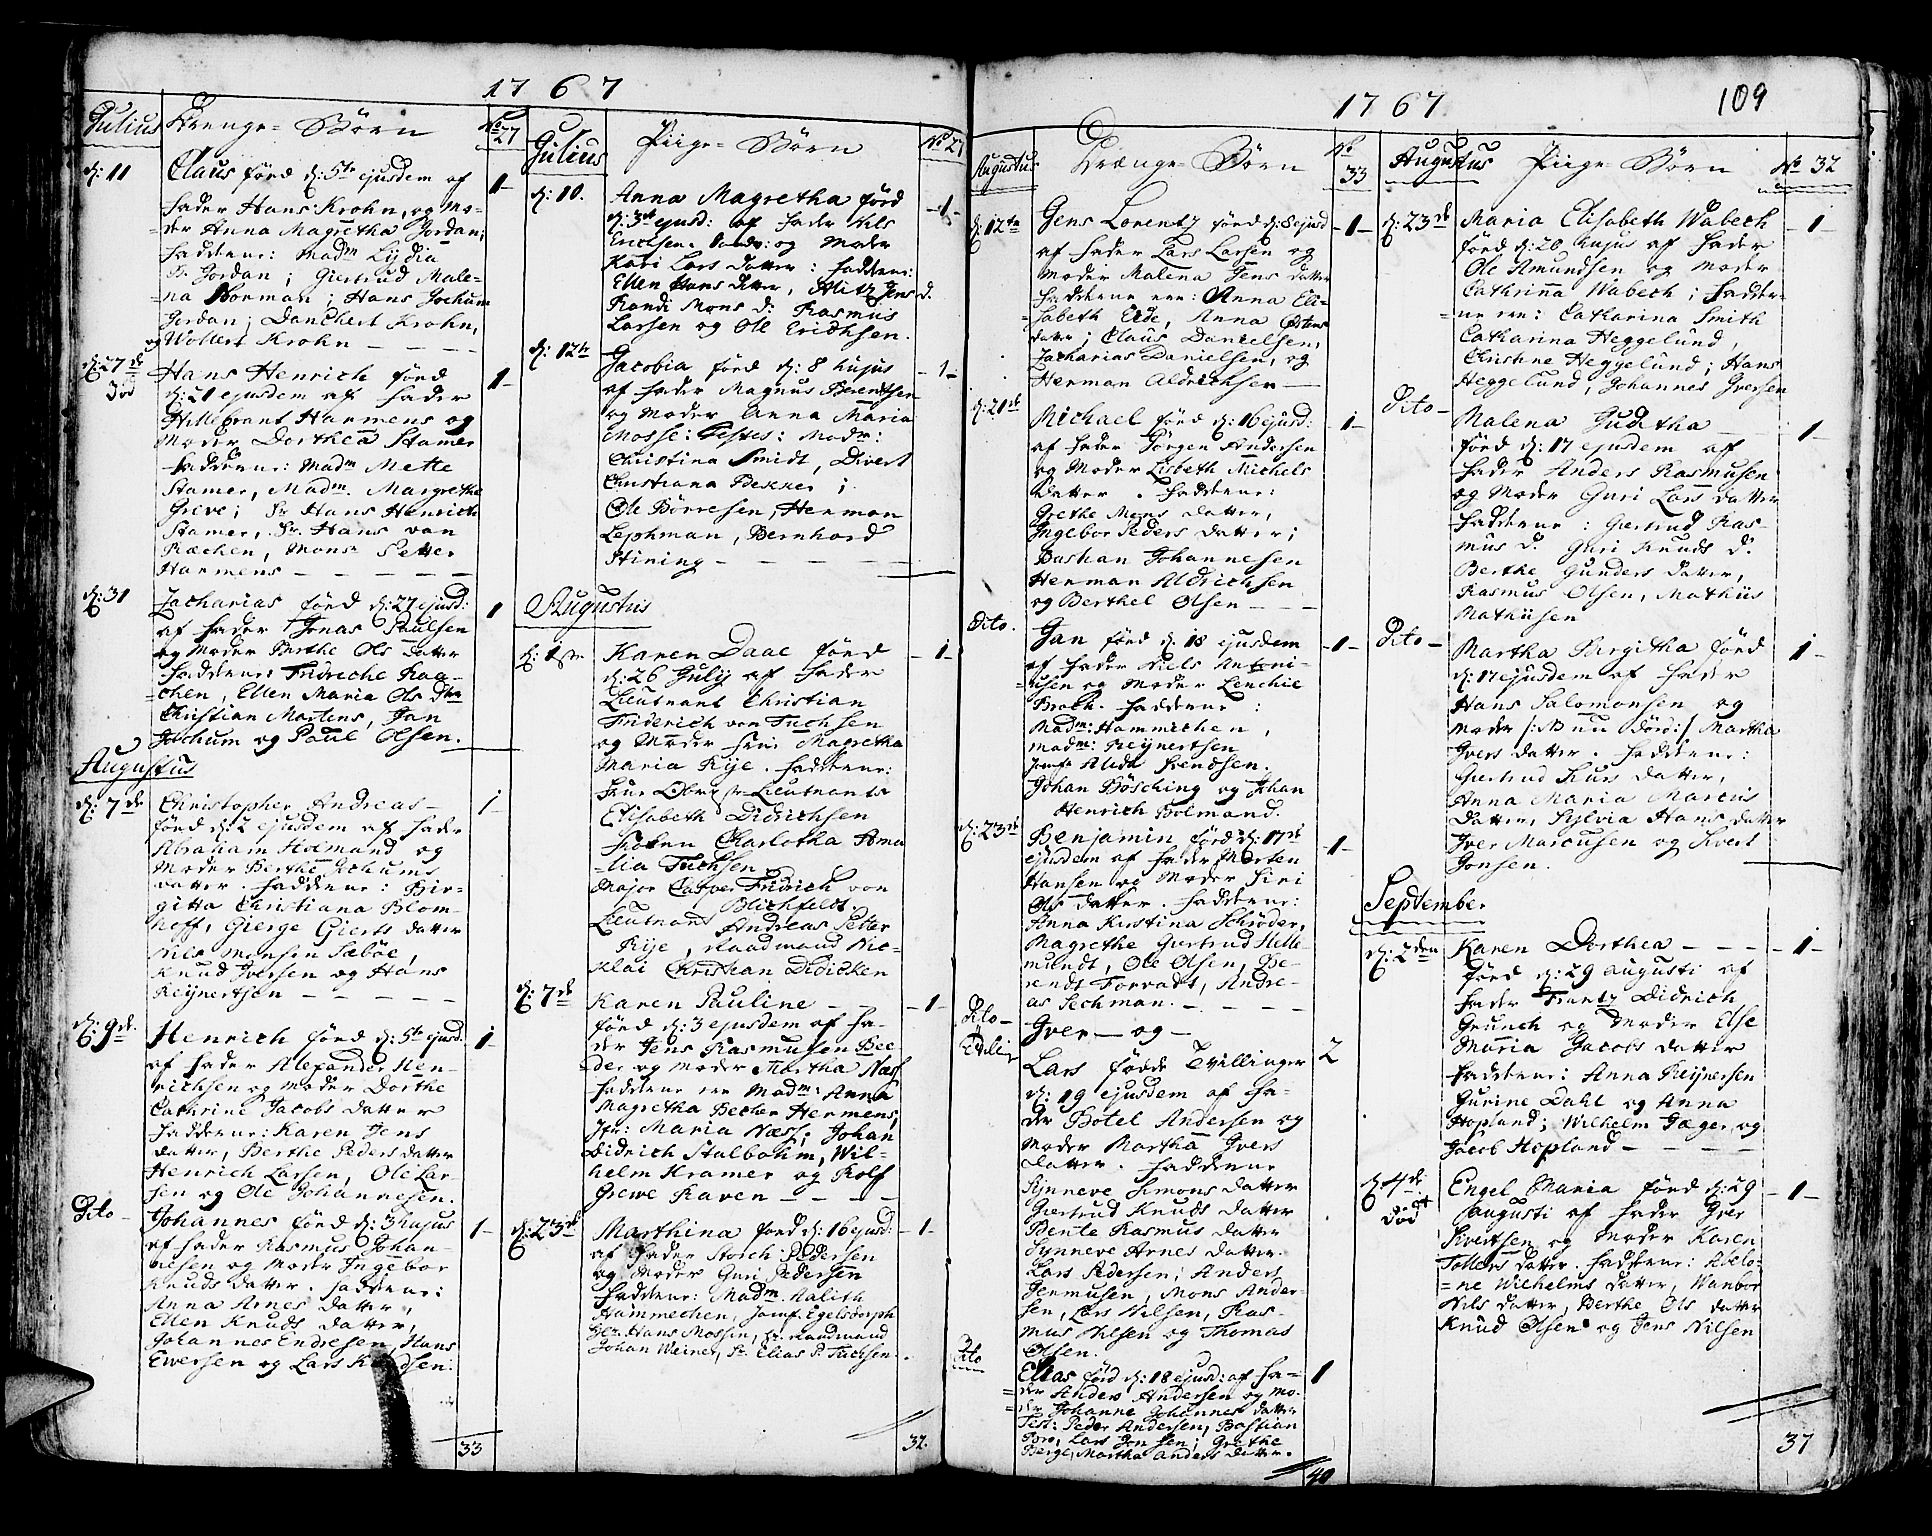 1767
Julius
Drenge-Børn
No 27
d: 11
Claus förd d: 5te ejusdem af
fader Hans Krohn, og Mo-
der Anna Magretha Jordan;
fadderne: Madm Lydia
Sr Jordan; Giertrud Male-
na Norman; Hans Jochum
Jordan; Danchert Krohn,
og Wollert Krohn
1
d: 27de
död
Hans Henrich förd
d: 21 ejusdem af fader
Hillebrant Harmens og
Moder Dorthea Stamer
fadderne: Madm Mette
Stamer, Madm. Margrethe
Greve; Sr Hans Henrich
Stamer, Sr. Hans von
Ræchen, Monsr Petter
Harmens
1
d: 31
Zacharias förd d: 27 ejusd:
af fader Jonas Paulsen
og Moder Berthe Ols datter
fadderne: Fridreche Raa-
chen, Ellen Maria Ols dtr
Christian Martens, Jan
Jochum og Paul Olsen.
1
Augustus
d: 7de
Christopher Andreas
förd d: 2 ejusdem af fader
Abraham Holmand og
Moder Berthe Jochums
datter. fadderne: Bir-
gitta Christiana Blom-
hoff, Gierge Gierts datter
Nils Monsen Sæböe,
Knud Iversen og Hans
Reijnertsen
1
d: 9de
Henrich förd d: 5te ejusd.
af fader Alexander Hen-
richsen og Moder Dorthe
Cathrine Jacobs datter
fadderne: Karen Jens
datter, Berthe Peders datter
Henrich Larsen, Ole Lar-
sen og Ole Johannesen.
1
Dito
Johannes förd d: 3 hujus
af fader Rasmus Johan-
nesen og Moder Ingebor
Knuds datter. fadderne:
Anna Arnes datter,
Ellen Knuds datter,
Johannes Endresen, Hans
Ewersen og Lars Knudsen.
1
33
Julius
Piige-Børn
No 27
d: 10.
Anna Magretha förd
d: 3de ejusd: af fader Nils
Erichsen og Moder
Kari Lars datter: fadderne:
Ellen Hans dtter, Jens d.
Randi Mons d: Rasmus
Larsen og Ole Erichsen.
1
d: 12te
Jacobia förd d: 8 hujus
af fader Magnus Berentsen
og Moder Anna Maria
Mosse: Testes: Madm:
Christina Smidt, Divert
Christiana Bekker;
Ole Börresen, Herman
Lephman, Bernhord
Stining
1
Augustus
d: 1ste
Karen Daae förd
d: 26 July af fader
Lieutnant Christian
Friderich von Fuchsen
og Moder Magretha
Maria Rije. fadderne:
Fru Obrist-Lieutnant
Elisabeth Didrichsen
Fröken Charlotha Ama
lia Fuchsen
Major Casper Fridrich von
Blichfeldt.
Lieutnant Andreas Petter
Rije, Raadmand Nic-
klai Christian Didicken
1
d: 7de
Karen Pauline
förd d: 3 ejusdem af fa-
der Jens Rasmusen Bee-
der og moder Martha Næss
fadderne ere Madm: Anna
Magretha Becher Hermens,
Jfr: Maria Næss; Johan
Didrich Stalbohm, Wil-
helm Kramer og Rolf
Grewe Raven
1
d: 23de
Marthina förd d: 16 ejusd:
af fader Storch Pedersen
og Moder Guri Pedersen
fadderne: Madm. Aalith
Hammechen, Jomf. Egelsdorph
Hr. Hans Mossin, Sr. raadmand
Johan Weiner, Sr. Elias P. Fuchsen.
1
32.
1767
109
Augustus
Drænge-Børn
No 33
d: 12te
Jens Lorentz förd d: 8 ejusd
af fader Lars Larsen og
Moder Malena Jens datter
fadderne ere: Anna Eli-
sabeth Eide, Anna Östens
datter; Claus Danielsen,
Zacharias Danielsen, og
Herman Aldrichsen
1
d: 21de
Michael förd d: 16 ejusd:
af fader Jörgen Andersen
og Moder Lisbeth Michels
datter. fadderne:
Grethe Mons datter,
Ingebor Peders datter;
Bastian Johannesen
Herman Aldrichsen
og Berthel Olsen
1
Dito.
Jan förd d: 18 ejusdem
af fader Niels Antoni-
usen og Moder Lenchie
Broch. fadderne:
Madm: Hammichen,
madm: Reijnertsen
Jomfr Alida Svendsen.
Johan Bösching og Johan
Henrich Bolmand.
1
d: 23de
Benjamin förd d: 17de
ejusdem af fader Morten
Hansen og Moder Siri
Ols datter. fadderne:
Anna Kistina Schröder,
Magrethe Giertrud Hille-
mundt, Ole Olsen, Be-
rendt Forvadt, Andre-
as Sechman.
1
Dito
Tvilling
Iver og
Lars födde Tvillinger
d: 19 ejusdem af fa-
der Botel Andersen og
Moder Martha Ivers
datter. fadderne
Synneve Simons datter
Giertrud Knuds datter
Bente Rasmus datter
Synneve Arnes datter.
Lars Pedersen, Anders
Jenmusen, Mons Ander-
sen, Lars Nilsen, Ras-
mus Nilsen og Thomas
Olsen.
2
Dito
Elias förd d: 18 ejusd: af fa-
der Anders Andersen og Mo-
der Johanne Johannes datter
Test: Peder Andersen, Bastian
Bro, Lars Jensen; Grethe
Berge, Martha Anders datter.
1
40
Augustus
Piige-Børn
No 32
d: 23de
Maria Elisabeth Wabech
förd d: 20 hujus af fader
Ole Amundsen og Moder
Cathrina Wabech; fadder-
ne ere: Catharina Smith
Catharina Heggelund,
Christine Heggelund; Hans
Heggelund, Johannes Iversen
1
Dito
Malena Juditha
förd d: 17 ejusdem af
fader Anders Rasmusen
og Moder Guri Lars datter
fadderne: Giertrud Ras-
mus d. Guri Knuds d.
Berthe Gunders datter,
Rasmus Olsen, Mathiis
Mathiisen
1
Dito
Martha Birgitha förd
d: 17 ejusdem af fader
Hans Salomonsen og
Moder /: Nu Död :/ Martha
Ivers datter. fadderne:
Giertrud Lars datter,
Anna Maria Marcus
datter, Sylvia Hans datter
Iver Marcusen og Sivert
Jonsen.
1
September
d: 2den
Karen Dorthea
förd d: 29 augusti af
fader Frantz Didrich
Grunch og Moder Else
Maria Jacobs datter
fadderne: Anna Reijnersen
Gurine Dahl og Anna
Hopland; Wilhelm Jæger og
Jacob Hopland
1
d: 4de
död
Engel Maria förd d: 29
augusti af fader Iver
Sivertsen og Moder Karen
Tollers datter. fadderne: Abelo-
ne Wilhelms datter, Wanbor
Nils datter, Berthe Ols datter
Knud Olsen og Jens Nilsen
1
37